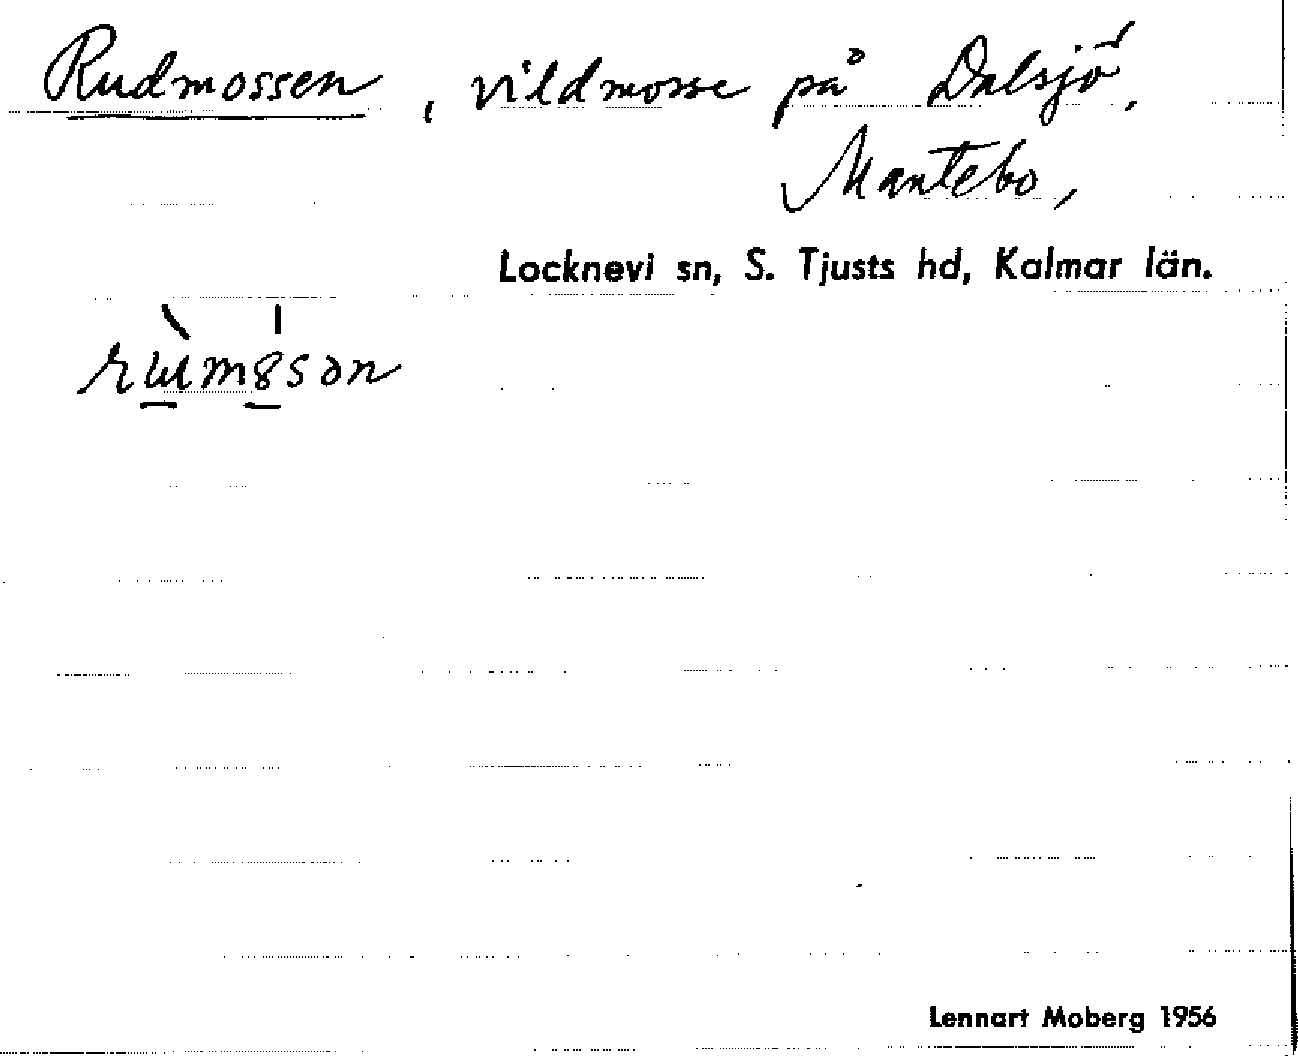 Rudmossen, vildmosse på Dalsjö,
Mantebo,
Locknevi sn, S. Tjusts hd, Kalmar län.
Lennart Moberg 1956